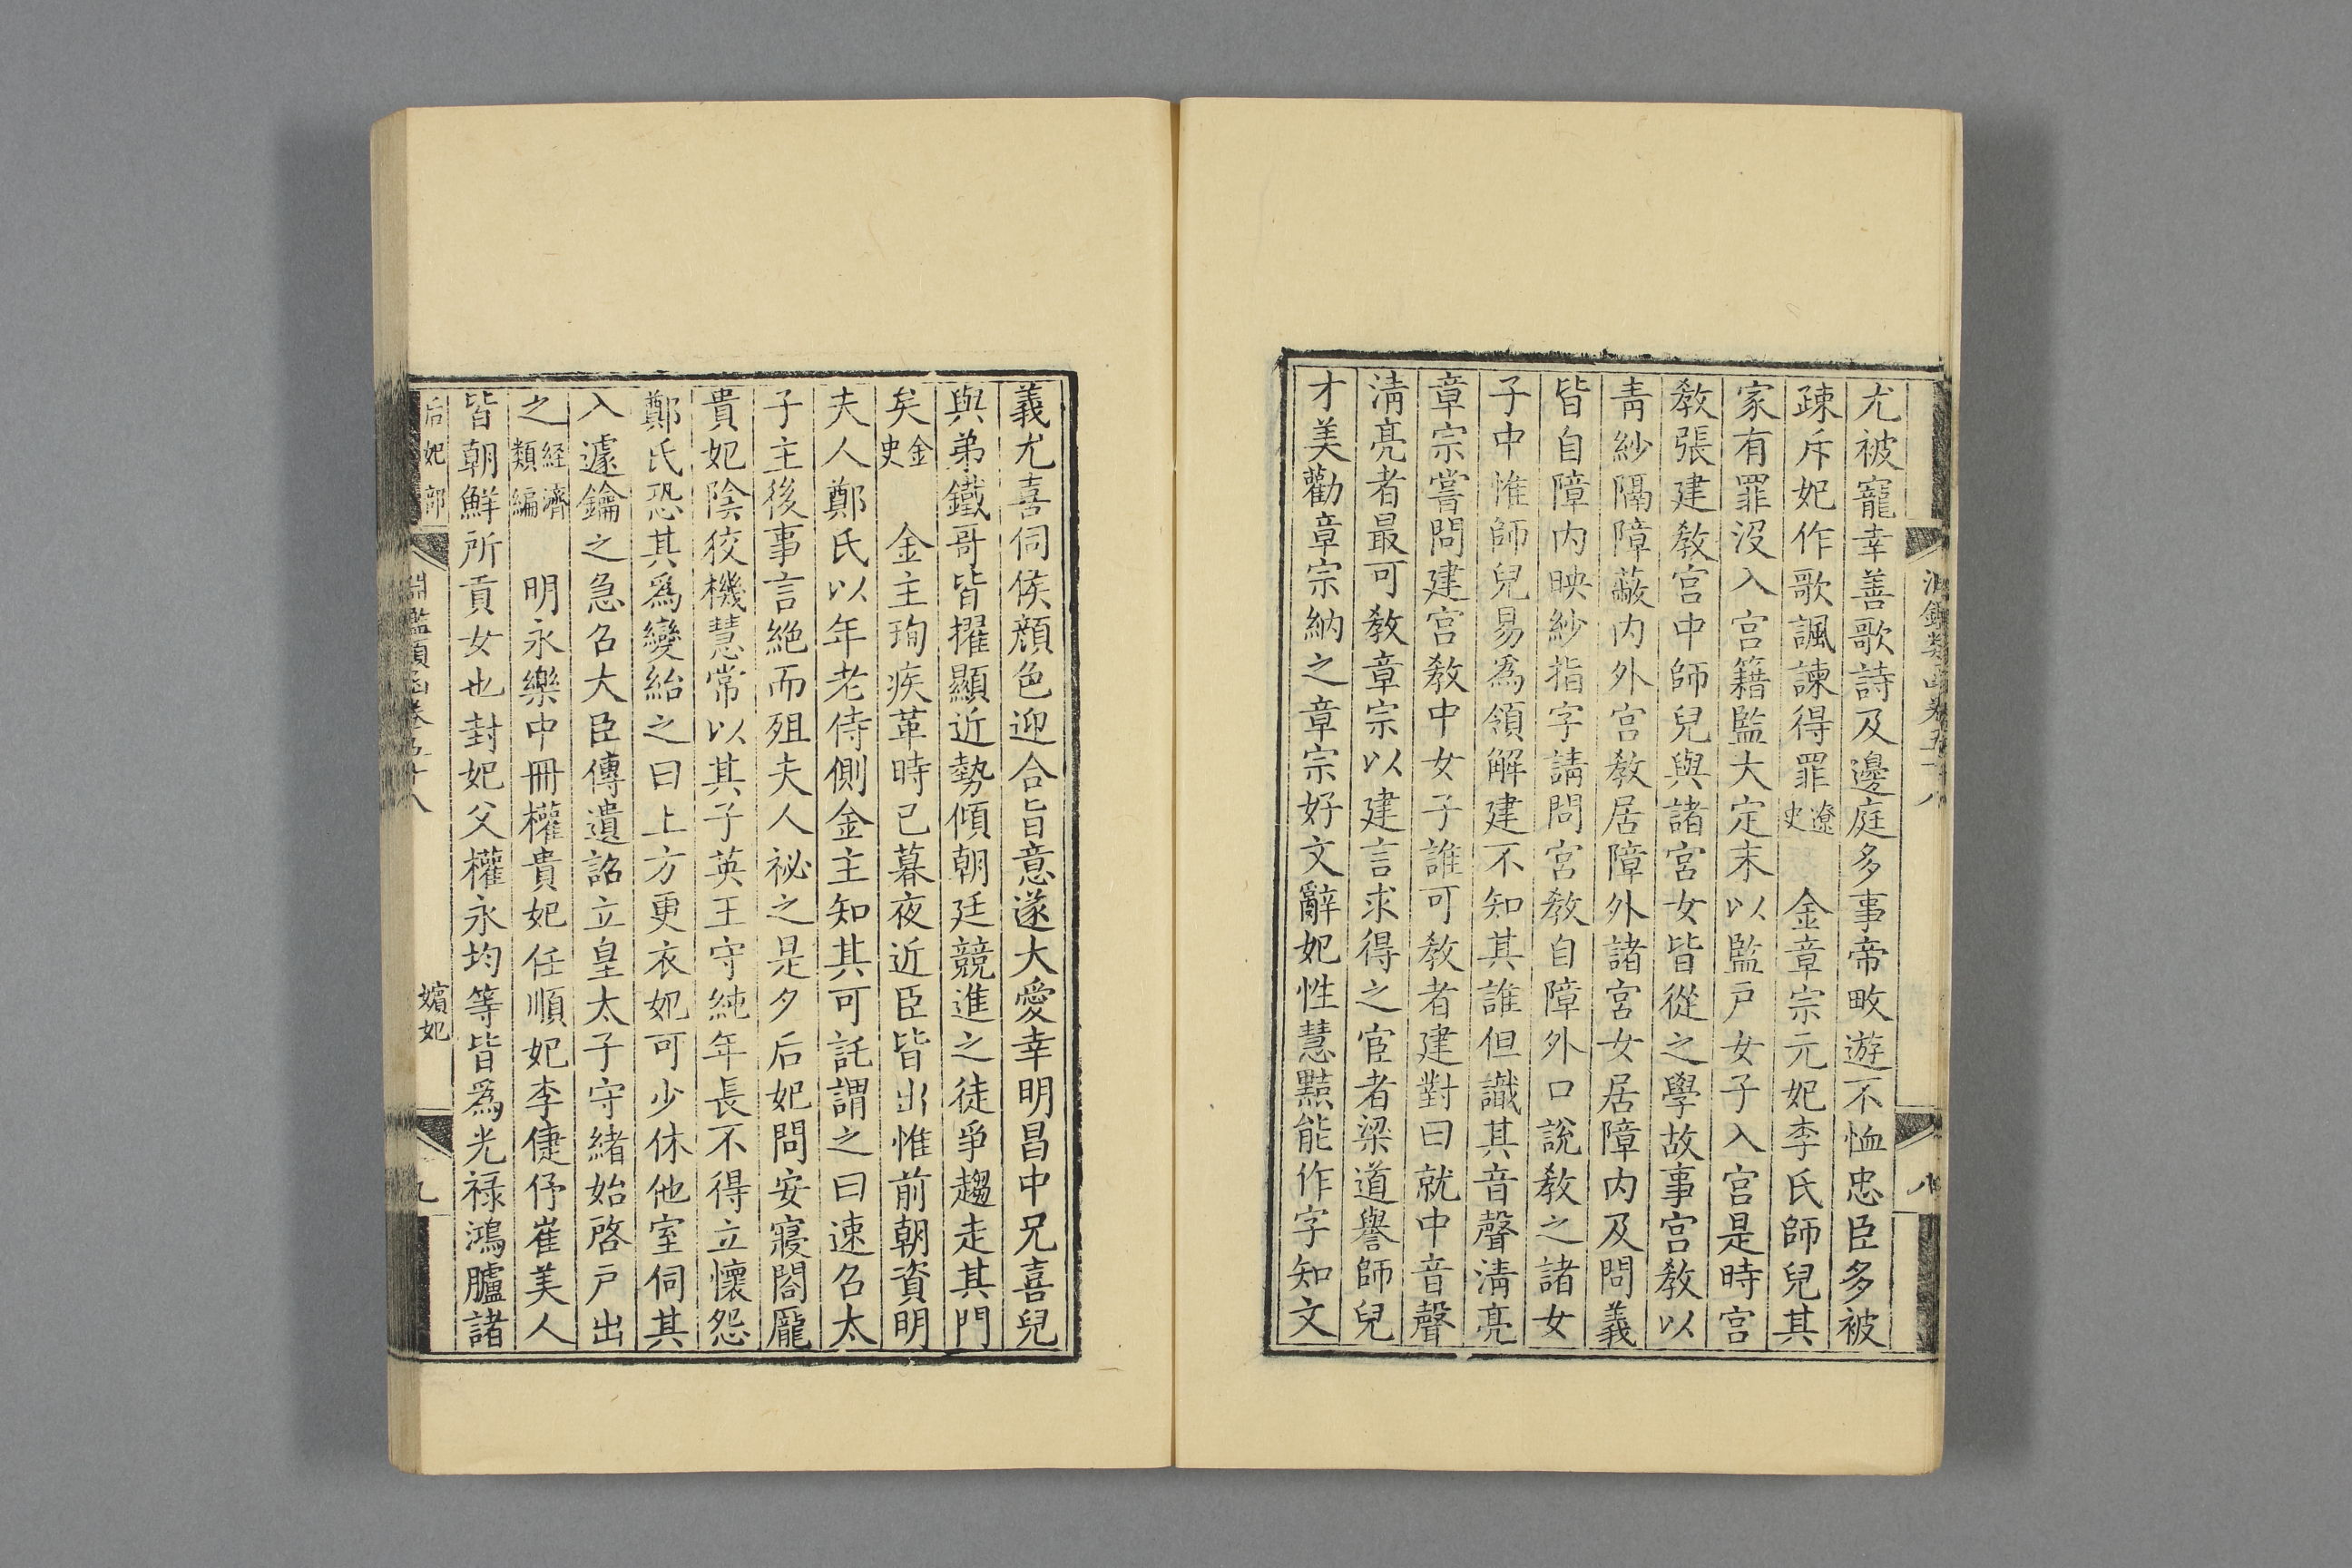 尤被寵幸善歌詩及邊庭多事帝畋遊不恤忠臣多被
疎斥妃作歌諷諫得罪遼史　金章宗元妃李氏師兒其
家有罪沒入宫籍監大定末以監戸女子入宫是時宫
敎張建敎宫中師兒與諸宫女皆從之學故事宫敎以
靑紗隔障蔽内外宫敎居障外諸宫女居障内及問義
皆自障内映紗指字請問宫敎自障外口說敎之諸女
子中惟師兒易爲領解建不知其誰但識其音聲淸亮
章宗嘗問建宫敎中女子誰可敎者建對曰就中音聲
淸亮者最可敎章宗以建言求得之宦者梁道譽師兒
才美勸章宗納之章宗好文辭妃性慧黠能作字知文
義尤喜伺候顔色迎合旨意遂大愛幸明昌中兄喜兒
與弟鐵哥皆擢顯近勢傾朝廷競進之徒爭趨走其門
矣金史　金主珣疾革時已暮夜近臣皆出惟前朝資明
夫人鄭氏以年老侍側金主知其可託謂之曰速召太
子主後事言絶而殂夫人祕之是夕后妃問安寢閤龐
貴妃陰狡機慧常以其子英王守純年長不得立懷怨
鄭氏恐其爲變紿之曰上方更衣妃可少休他室伺其
入遽鑰之急召大臣傳遺詔立皇太子守緒始啓戸出
之經濟類編　明永樂中冊權貴妃任順妃李倢伃崔美人
皆朝鮮所貢女也封妃父權永均等皆爲光禄鴻臚諸
后妃部　淵鑑類函卷五十八　嬪妃　九